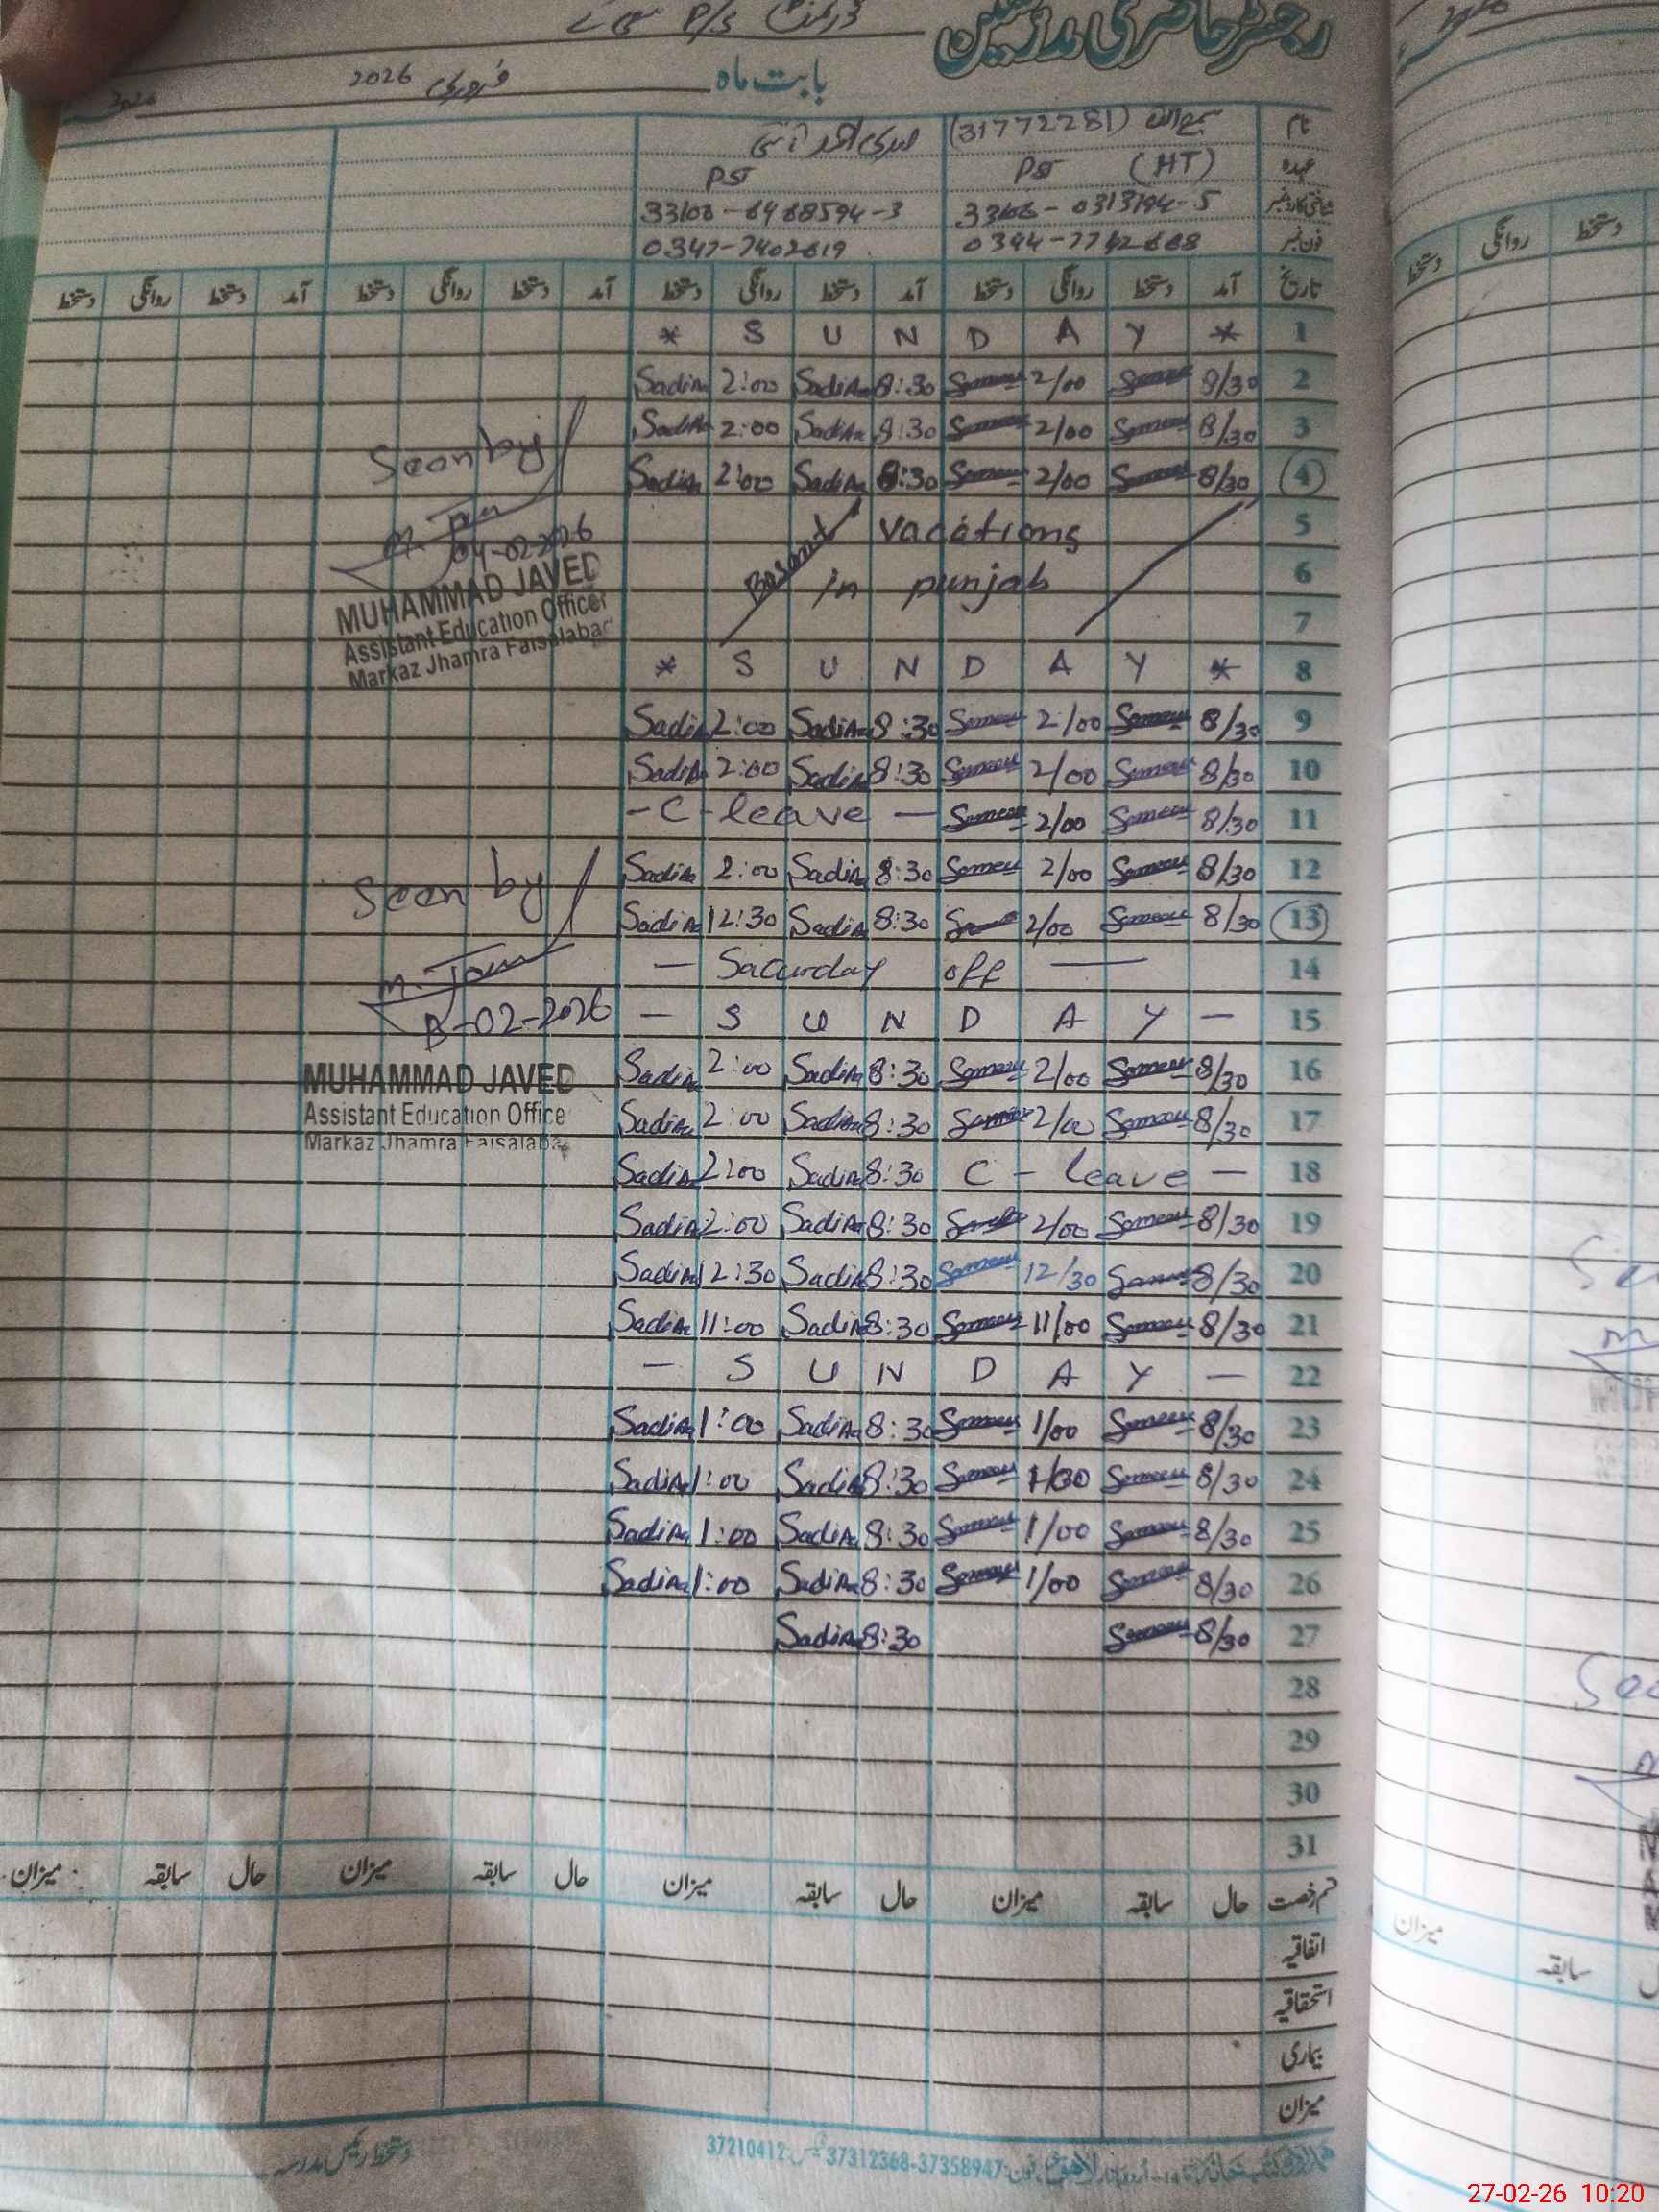 رجسٹر حاضری مدرسین
P/S
بابت ماہ فروری 2026
نام (31772281)
عہدہ PST (HT) PST
شناختی کارڈ نمبر 33106-0313194-5 33108-6468594-3
فون نمبر 0344-7742668 0347-7402619
تاریخ آمد دستخط روانگی دستخط آمد دستخط روانگی دستخط آمد دستخط روانگی دستخط آمد دستخط روانگی دستخط
* S U N D A Y * 1
SadiA 2:00 SadiA 8:30 2/00 8/30 2
SadiA 2:00 SadiA 8:30 2/00 8/30 3
SadiA 2:00 SadiA 8:30 2/00 8/30 4
Seen by
04-02-2026
MUHAMMAD JAVED
Assistant Education Officer
Markaz Jhamra Faisalabad
Basant vacations 5
in punjab 6
7
* S U N D A Y * 8
SadiA 2:00 SadiA 8:30 2/00 8/30 9
SadiA 2:00 SadiA 8:30 2/00 8/30 10
- C - leave - 2/00 8/30 11
SadiA 2:00 SadiA 8:30 2/00 8/30 12
SadiA 12:30 SadiA 8:30 2/00 8/30 13
Seen by
— Saturday off — 14
13-02-2026
— S U N D A Y — 15
MUHAMMAD JAVED
Assistant Education Office
Markaz Jhamra Faisalaba
SadiA 2:00 SadiA 8:30 2/00 8/30 16
SadiA 2:00 SadiA 8:30 2/00 8/30 17
SadiA 2:00 SadiA 8:30 C - leave - 18
SadiA 2:00 SadiA 8:30 2/00 8/30 19
SadiA 12:30 SadiA 8:30 12/30 8/30 20
SadiA 11:00 SadiA 8:30 11/00 8/30 21
— S U N D A Y — 22
SadiA 1:00 SadiA 8:30 1/00 8/30 23
SadiA 1:00 SadiA 8:30 8/30 24
SadiA 1:00 SadiA 8:30 1/00 8/30 25
SadiA 1:00 SadiA 8:30 1/00 8/30 26
SadiA 8:30 8/30 27
28
29
30
31
قسم رخصت حال سابقہ میزان حال سابقہ میزان حال سابقہ میزان حال سابقہ میزان
اتفاقیہ
استحقاقیہ
بیماری
میزان
دستخط رئیس مدرسہ
37210412 37312368-37358947
روانگی دستخط
دستخط
میزان
سابقہ
27-02-26 10:20